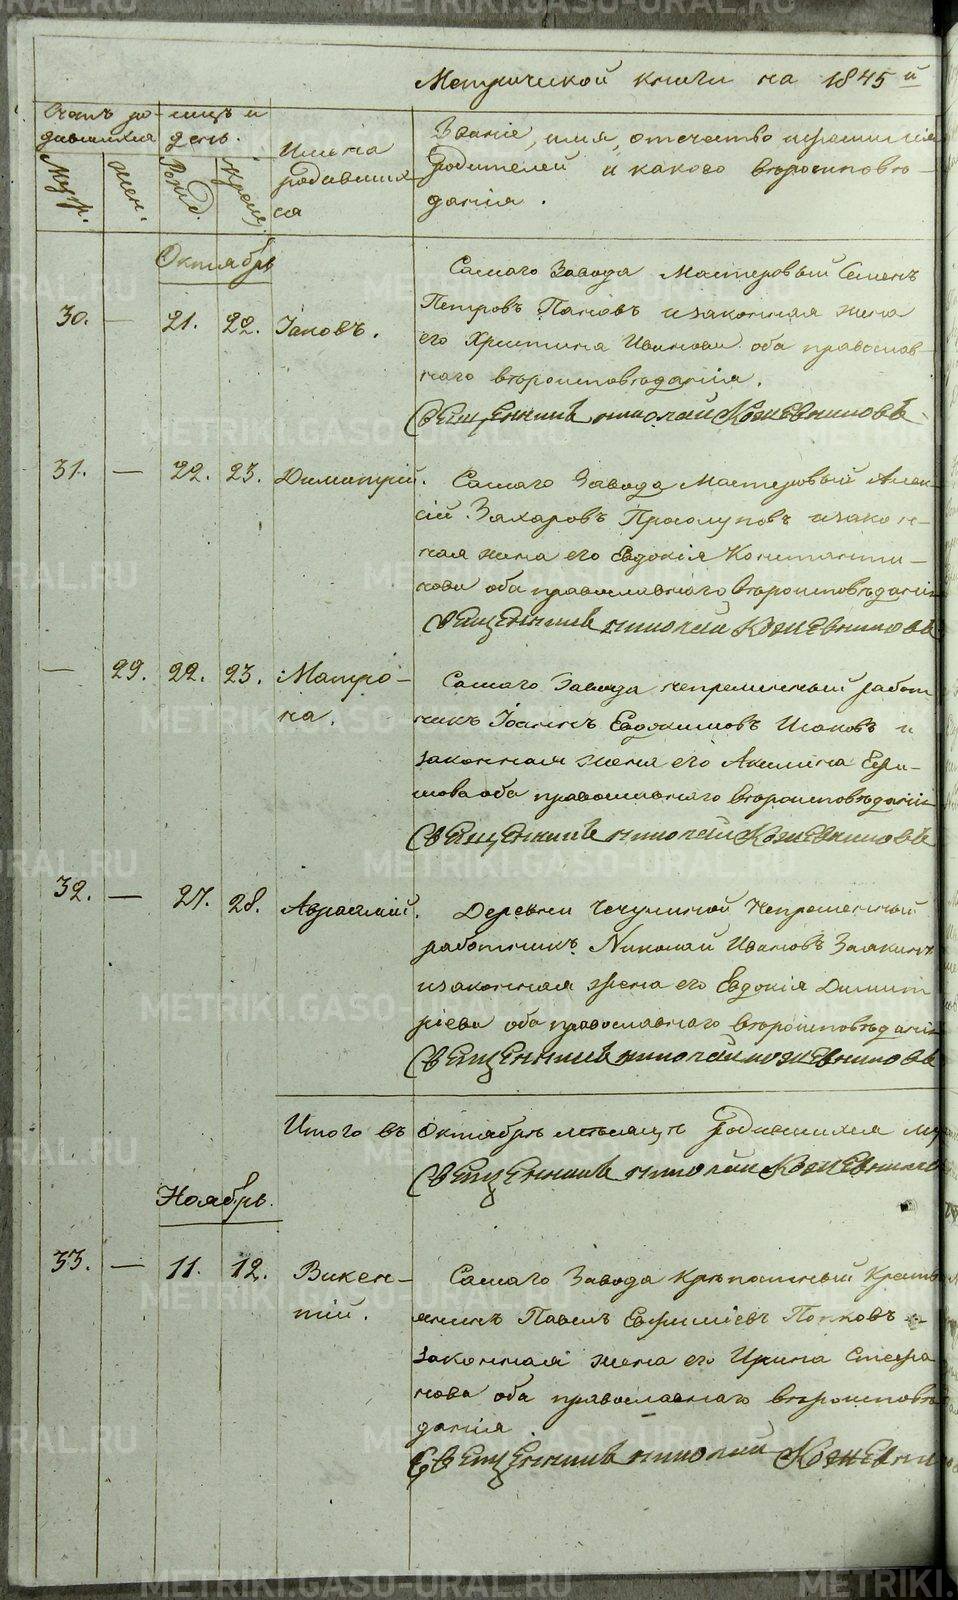 Метрической книги на 1845 й
Счетъ ро-
дившихся
Муж.
жен.
-сяцъ и
день.
Рожд.
Крещ.
Имена
родивших-
ся
Званіе, имя, отчество и фамилія
родителей и какого вѣроисповѣ-
данія.
Октябрь
30. — 21. 22. Іаковъ.
Самаго Завода Мастеровый Семенъ
Петровъ Пановъ и законная жена
его Христина Иванова оба православ-
наго вѣроисповѣданія.
Священникъ Николай Кожевниковъ
31. — 22. 23. Димитрій.
Самаго Завода Мастеровый Алек-
сій Захаровъ и закон-
ная жена его Евдокія Константи-
нова оба православнаго вѣроисповѣданія
Священникъ Николай Кожевниковъ
— 29. 22. 23. Матро-
на.
Самаго Завода непременный работ
никъ Іоаннъ Евдокимовъ Исаковъ и
законная жена его Акилина Ефи-
мова оба православнаго вѣроисповѣданія
Священникъ Николай Кожевниковъ
32. — 27. 28. Авраамій.
Деревни Непременный
работникъ Николай Ивановъ
и законная жена его Евдокія Димит
ріева оба православнаго вѣроисповѣданія
Священникъ Николай Кожевниковъ
Итого въ Октябрѣ мѣсяцѣ родившихся му
Священникъ Николай Кожевников
Ноябрь.
33. — 11. 12. Викен-
тій.
Самаго Завода Крѣпостный Кресть
янинъ Павелъ Евфиміевъ Попковъ и
законная жена его Ирина Стефа
нова оба православнаго вѣроисповѣ
данія
Священникъ Николай Кожевни
METRIKI.GASO-URAL.RU